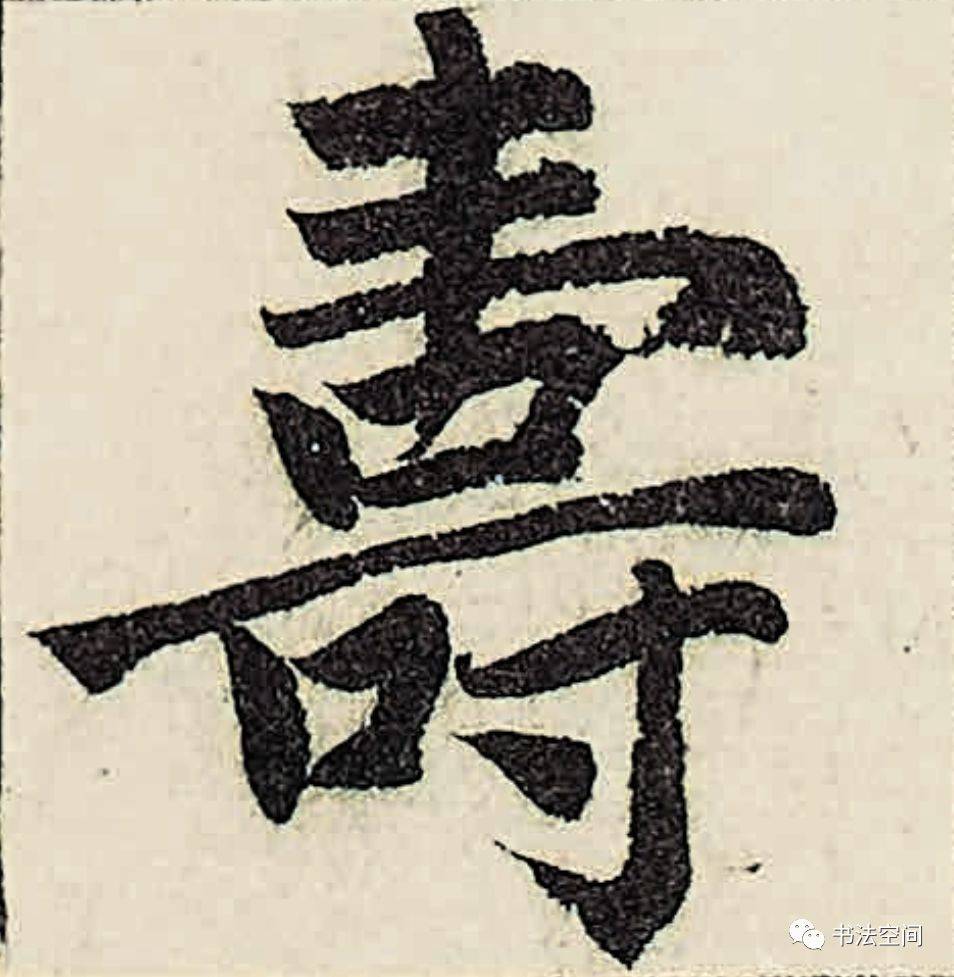 壽
书法空间